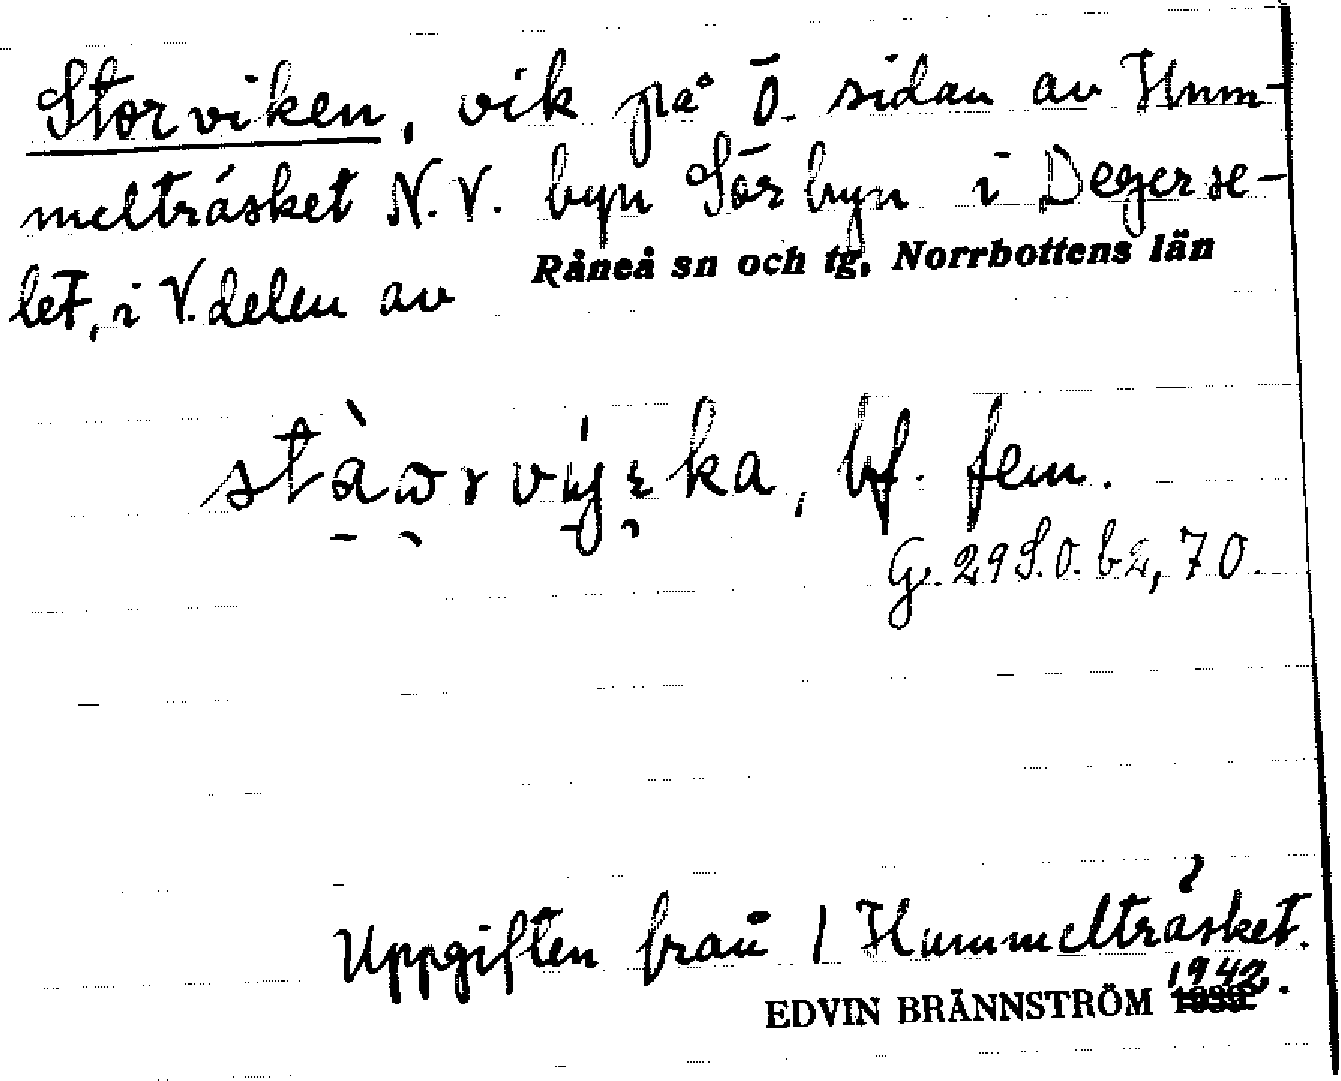 Storviken, vik på Ö. sidan av Hum-
melträsket N.V. byn Sörbyn i Degerse-
let, i V. delen av Råneå sn och tg, Norrbottens län
bf. fem.
G. 29 S.O. b2, 70.
Uppgiften från 1 Hummelträsket.
EDVIN BRÄNNSTRÖM 1942.